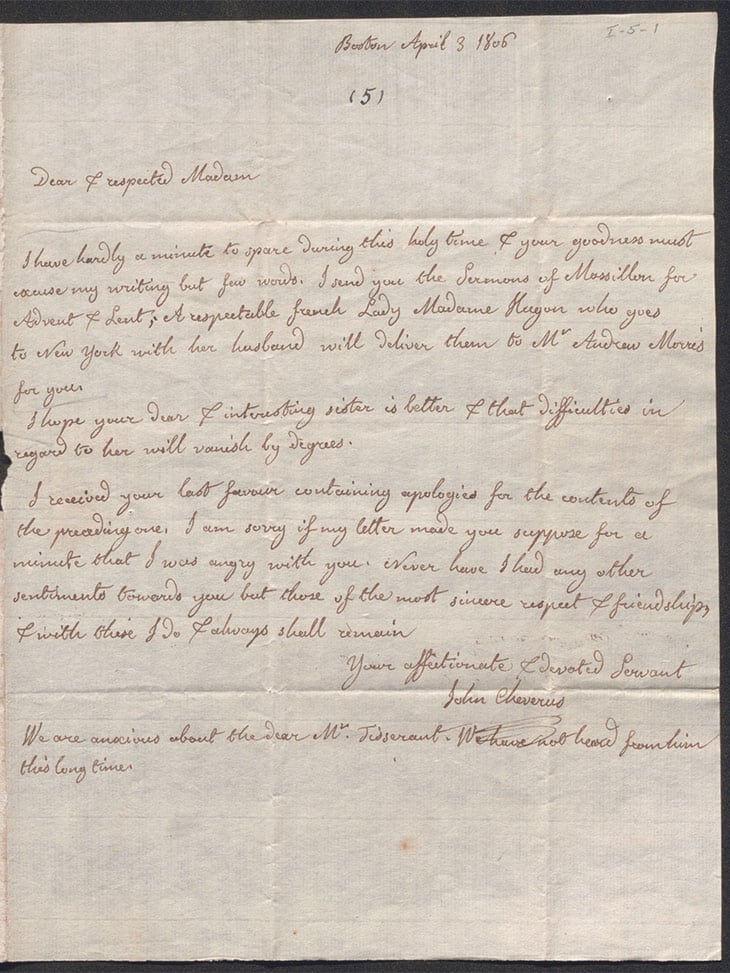 I-5-1
Boston April 3 1806
(5)
Dear & respected Madam
I have hardly a minute to spare during this holy time & your goodness must
excuse my writing but few words. I send you the Sermons of Massillon for
Advent & Lent; A respectable french Lady Madame Hugon who goes
to New York with her husband will deliver them to Mr Andrew Morris
for you.
I hope your dear & interesting sister is better & that difficulties in
regard to her will vanish by degrees.
I received your last favour containing apologies for the contents of
the preceding one. I am sorry if my letter made you suppose for a
minute that I was angry with you. Never have I had any other
sentiments towards you but those of the most sincere respect & friendship,
& with these I do & always shall remain
Your affectionate & devoted Servant
John Cheverus
We are anxious about the dear Mr. Tisserant. We have not heard from him
this long time.